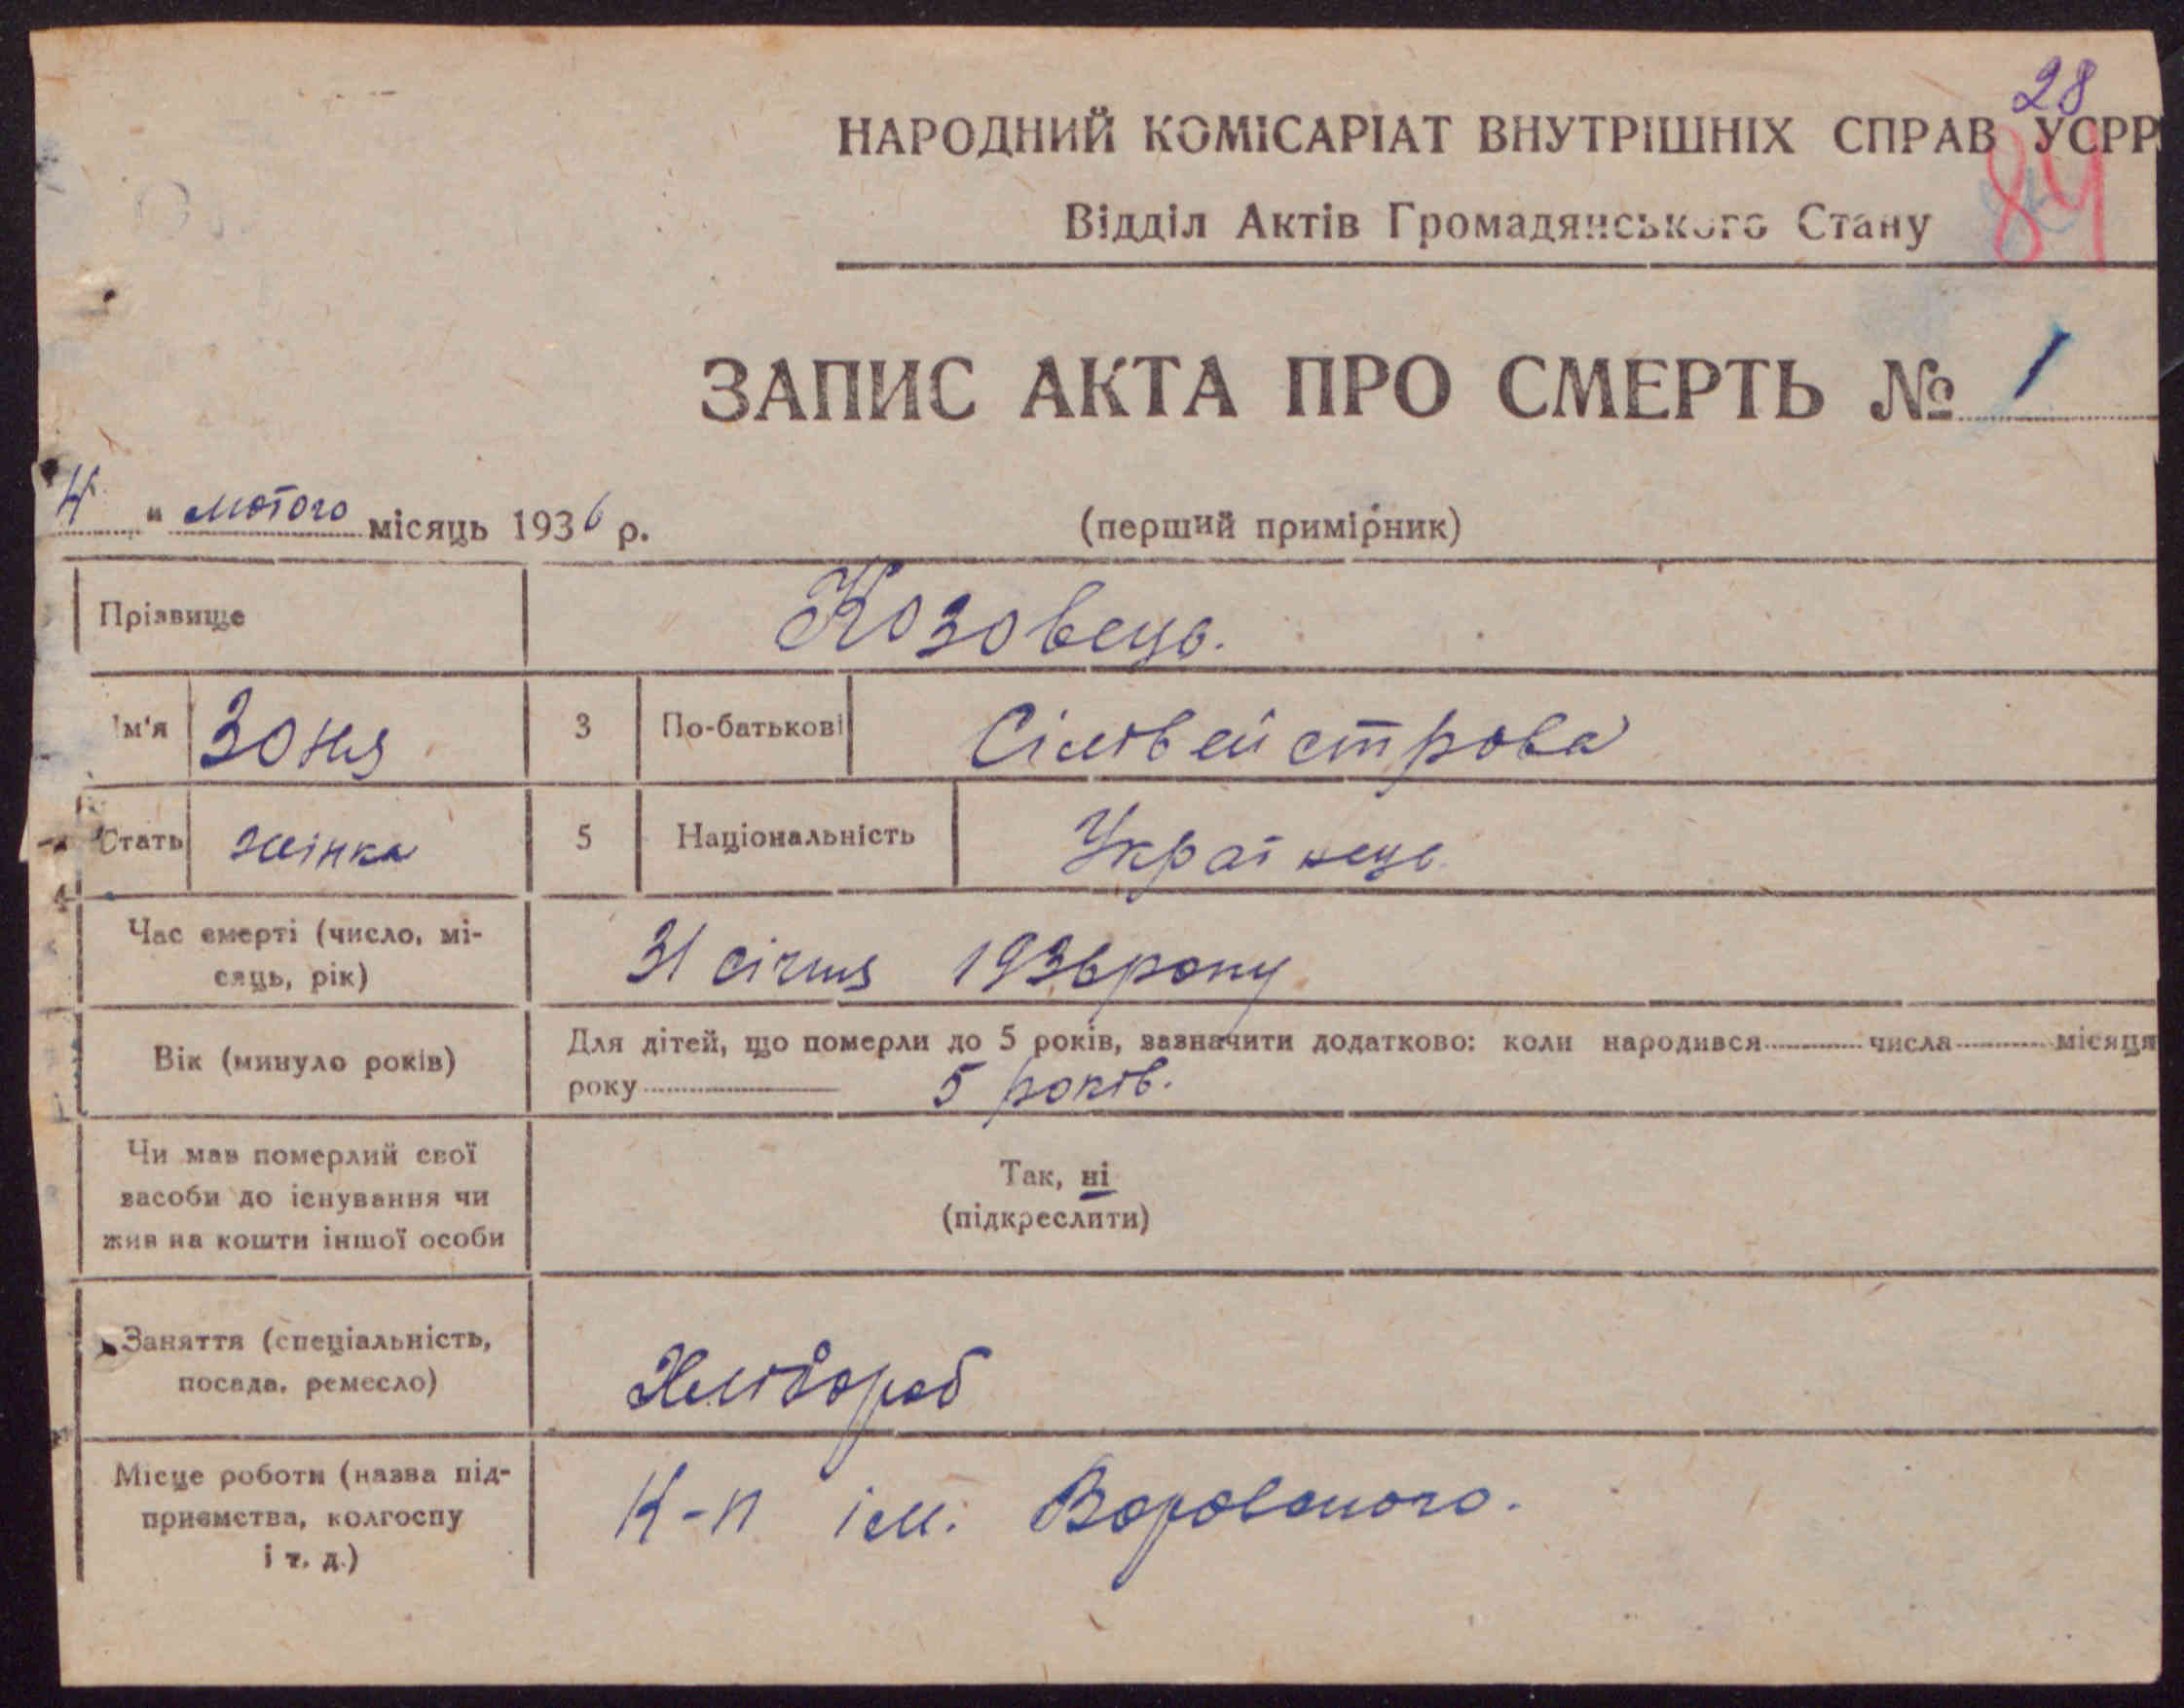 28
НАРОДНИЙ КОМІСАРІАТ ВНУТРІШНІХ СПРАВ УСРР
84
Відділ Актів Громадянського Стану
ЗАПИС АКТА ПРО СМЕРТЬ № 1
4 " лютого місяць 1936 р. (перший примірник)
Прізвище Козовець.
Ім'я Зоня 3 По-батькові Сілівейстрова
Стать жінка 5 Національність Українець
Час смерті (число, мі-
сяць, рік) 31 січня 1936 року
Вік (минуло років) Для дітей, що померли до 5 років, зазначити додатково: коли народився числа місяця
року 5 років.
Чи мав померлий свої
засоби до існування чи
жив на кошти іншої особи
Так, ні
(підкреслити)
Заняття (спеціальність,
посада, ремесло) Хлібороб
Місце роботи (назва під-
приємства, колгоспу
і т. д.)
К-п ім.